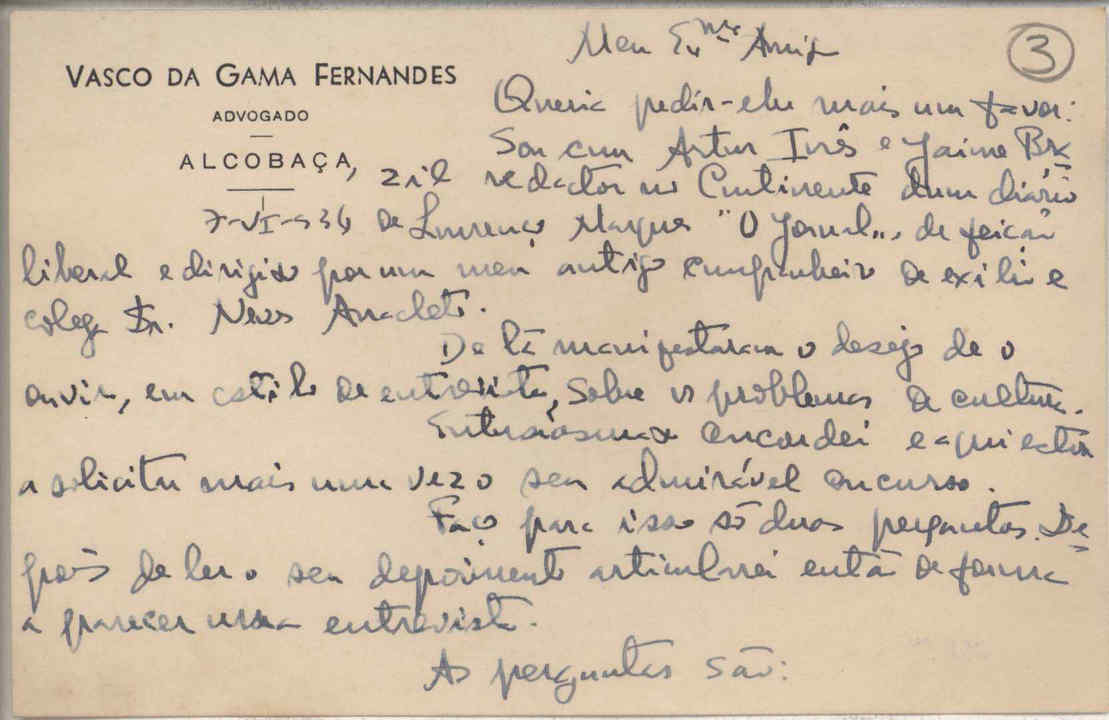 Meu Ex.mo Amigo
3
VASCO DA GAMA FERNANDES
ADVOGADO
ALCOBAÇA,
7-VI-934
Queria pedir-lhe mais um favor:
Sou com Artur Inês e Jaime Bra
zil redactor no Continente dum diário
de Lourenço Marques "O Jornal", de feição
liberal e dirigido por um meu antigo companheiro de exílio e
colega Dr. Neves Anacleto.
De lá manifestaram o desejo de o
ouvir, em estilo de entrevista, sobre os problemas da cultura.
Entusiasmado concordei e aqui estou
a solicitar mais uma vez o seu admirável concurso.
Faço para isso só duas perguntas. De
pois de ler o seu depoimento articularei então de forma
a parecer uma entrevista.
As perguntas são: